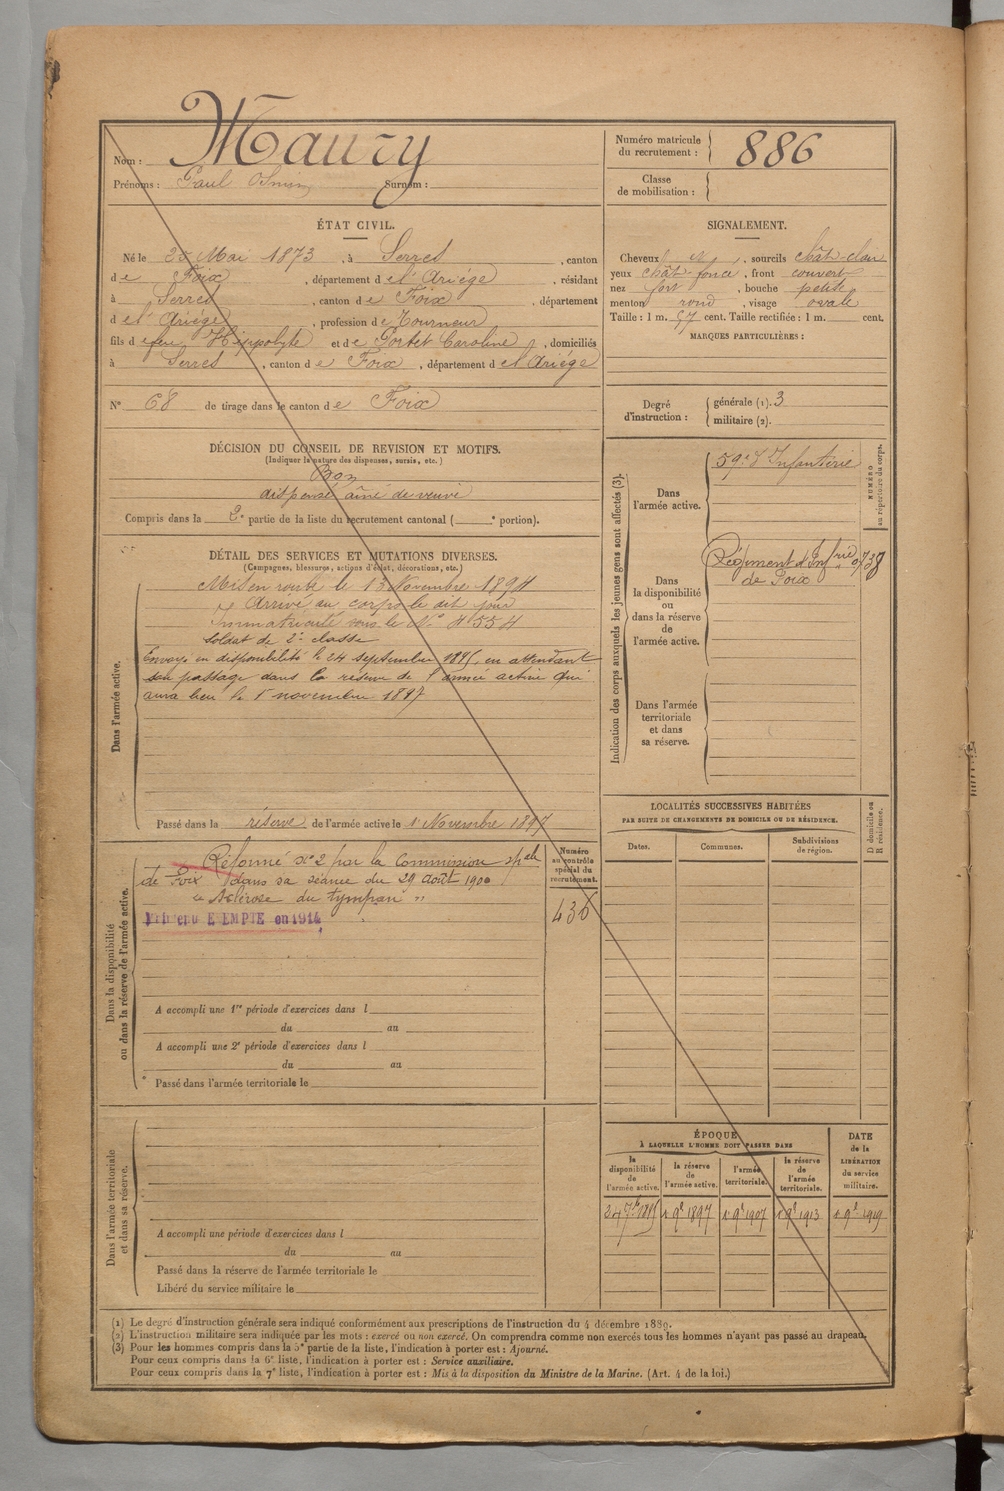 Nom : Maury
Prénoms : Paul Surnom :
Numéro matricule du recrutement : 886
Classe de mobilisation :
ÉTAT CIVIL.
Né le 25 Mai 1873, à Serres, canton
de Foix, département de l'Ariége, résidant
à Serres, canton de Foix, département
de l'Ariége, profession de Tourneur
fils de feu Hippolyte et de Portet Caroline, domiciliés
à Serres, canton de Foix, département de l'Ariége
N° 68 de tirage dans le canton de Foix
SIGNALEMENT.
Cheveux , sourcils chât-clair
yeux chât-foncé, front couvert
nez fort, bouche petite
menton rond, visage ovale
Taille : 1 m. 57 cent. Taille rectifiée : 1 m. cent.
MARQUES PARTICULIÈRES :
Degré d'instruction : générale (1). 3
militaire (2).
DÉCISION DU CONSEIL DE REVISION ET MOTIFS.
(Indiquer la nature des dispenses, sursis, etc.)
Bon
dispensé aîné de veuve
Compris dans la 2e partie de la liste du recrutement cantonal ( e portion).
DÉTAIL DES SERVICES ET MUTATIONS DIVERSES.
(Campagnes, blessures, actions d'éclat, décorations, etc.)
Dans l'armée active.
Mis en route le 13 Novembre 1894
Arrivé au corps le dit jour
Immatriculé sous le N° 4554
Soldat de 2e classe
Envoyé en disponibilité le 24 septembre 1895, en attendant
son passage dans la réserve de l'armée active qui
aura lieu le 1er novembre 1897
Passé dans la réserve de l'armée active le 1er Novembre 1897
Dans la disponibilité ou dans la réserve de l'armée active.
Réformé n° 2 par la Commission spale
de Foix dans sa séance du 29 août 1900
"Sclérose du tympan"
EXEMPTE en 1914
A accompli une 1re période d'exercices dans l
du au
A accompli une 2e période d'exercices dans l
du au
Passé dans l'armée territoriale le
Numéro au contrôle spécial du recrutement.
436
Dans l'armée territoriale et dans sa réserve.
A accompli une période d'exercices dans l
du au
Passé dans la réserve de l'armée territoriale le
Libéré du service militaire le
Indication des corps auxquels les jeunes gens sont affectés (3).
NUMÉRO au répertoire du corps.
Dans l'armée active.
59e d'Infanterie
Dans la disponibilité ou dans la réserve de l'armée active.
Régiment d'Infrie
de Foix
Dans l'armée territoriale et dans sa réserve.
LOCALITÉS SUCCESSIVES HABITÉES
PAR SUITE DE CHANGEMENTS DE DOMICILE OU DE RÉSIDENCE.
D domicile ou R résidence.
Dates. Communes. Subdivisions de région.
ÉPOQUE
À LAQUELLE L'HOMME DOIT PASSER DANS
DATE de la LIBÉRATION du service militaire.
la disponibilité de l'armée active.
la réserve de l'armée active.
l'armée territoriale.
la réserve de l'armée territoriale.
24 7bre 1895 1 9e 1897 1 9e 1907 1 9e 1913 1 9e 1919
(1) Le degré d'instruction générale sera indiqué conformément aux prescriptions de l'instruction du 4 décembre 1889.
(2) L'instruction militaire sera indiquée par les mots : exercé ou non exercé. On comprendra comme non exercés tous les hommes n'ayant pas passé au drapeau.
(3) Pour les hommes compris dans la 5e partie de la liste, l'indication à porter est : Ajourné.
Pour ceux compris dans la 6e liste, l'indication à porter est : Service auxiliaire.
Pour ceux compris dans la 7e liste, l'indication à porter est : Mis à la disposition du Ministre de la Marine. (Art. 4 de la loi.)